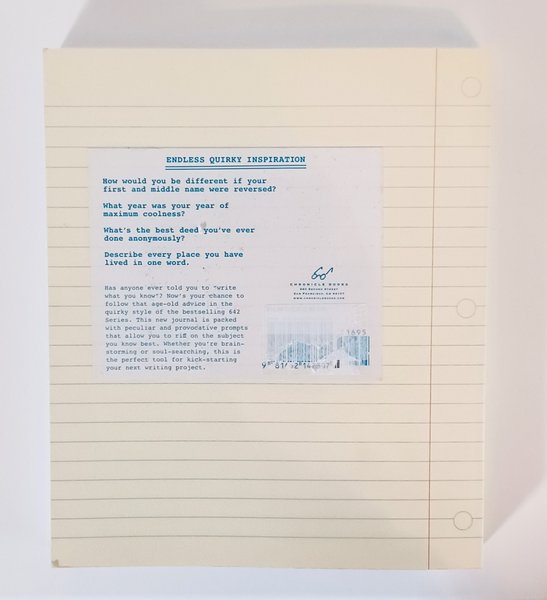 ENDLESS QUIRKY INSPIRATION
How would you be different if your
first and middle name were reversed?
What year was your year of
maximum coolness?
What's the best deed you've ever
done anonymously?
Describe every place you have
lived in one word.
Has anyone ever told you to "write
what you know"? Now's your chance to
follow that age-old advice in the
quirky style of the bestselling 642
Series. This new journal is packed
with peculiar and provocative prompts
that allow you to rif on the subject
you know best. Whether you're brain-
storming or soul-searching, this is
the perfect tool for kick-starting
your next writing project.
CHRONICLE BOOKS
680 SECOND STREET
SAN FRANCISCO, CA 94107
WWW.CHRONICLEBOOKS.COM
51695